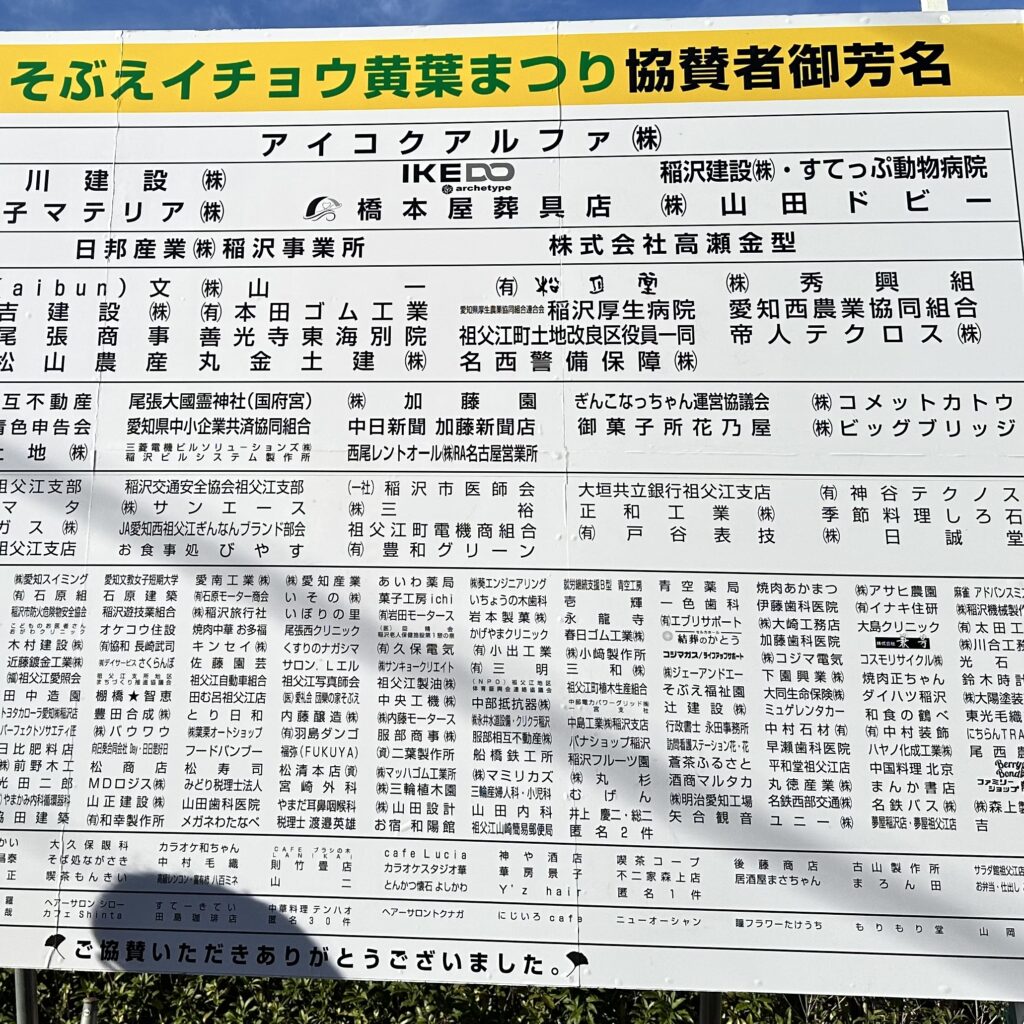 そぶえイチョウ黄葉まつり協賛者御芳名
アイコクアルファ㈱
川建設㈱ IKEDO archetype 稲沢建設㈱・すてっぷ動物病院
子マテリア㈱ 橋本屋葬具店 ㈱山田ドビー
日邦産業㈱稲沢事業所 株式会社高瀬金型
(aibun)文 ㈱山一 ㈲松月堂 ㈱秀興組
吉建設㈱ ㈲本田ゴム工業 愛知県厚生農業協同組合連合会 稲沢厚生病院 愛知西農業協同組合
尾張商事 善光寺東海別院 祖父江町土地改良区役員一同 帝人テクロス㈱
松山農産 丸金土建㈱ 名西警備保障㈱
互不動産 尾張大國霊神社(国府宮) ㈱加藤園 ぎんこなっちゃん運営協議会 ㈱コメットカトウ
青色申告会 愛知県中小企業共済協同組合 中日新聞 加藤新聞店 御菓子所花乃屋 ㈱ビッグブリッジ
土地㈱ 三菱電機ビルソリューションズ㈱ 稲沢ビルシステム製作所 西尾レントオール㈱RA名古屋営業所
祖父江支部 稲沢交通安全協会祖父江支部 (一社)稲沢市医師会 大垣共立銀行祖父江支店 ㈲神谷テクノス
マタ ㈱サンエース ㈱三裕 正和工業㈱ 季節料理しろ石
ガス㈱ JA愛知西祖父江ぎんなんブランド部会 祖父江町電機商組合 ㈲戸谷表技 ㈱日誠堂
祖父江支店 お食事処びやす ㈲豊和グリーン
㈱愛知スイミング 愛知文教女子短期大学 愛南工業㈱ ㈱愛知産業 あいわ薬局 ㈱葵エンジニアリング 就労継続支援B型 青空工房 青空薬局 焼肉あかまつ ㈱アサヒ農園 麻雀 アドバンスミ
㈲石原組 石原建築 ㈲石原モーター商会 いその㈱ 菓子工房ichi いちょうの木歯科 壱輝 一色歯科 伊藤歯科医院 ㈲イナキ住研 ㈱稲沢機械製作
稲沢市防火危険物安全協会 稲沢遊技業組合 ㈱稲沢旅行社 いぼりの里 ㈲岩田モータース 岩本製菓㈱ 永龍寺 ㈲エブリサポート ㈱大崎工務店 大島クリニック ㈲太田工
こどものお医者さん おがわクリニック オケコウ住設 焼肉中華 お多福 尾張西クリニック かげやまクリニック 春日ゴム工業㈱ 結葬のかとう 加藤歯科医院 ㈱川合工務
木村建設㈱ ㈲協和 長崎武司 キンセイ㈱ くすりのナガシマ ㈲久保電気 ㈲小出工業 ㈱小﨑製作所 コジマガス/ライフアップサポート ㈱コジマ電気 コスモリサイクル㈱ 光石
近藤鍍金工業㈱ ㈱デイサービスさくらんぼ 佐藤園芸 サロン.Lエル ㈱サンキョークリエイト ㈲三明 三和㈱ ㈱ジェーアンドエー 下園興業㈱ 焼肉正ちゃん 鈴木時計
祖父江愛照会 祖父江町地区まちづくり推進協議会 祖父江自動車組合 祖父江写真師会 祖父江製油㈱ (NPO)祖父江地区体育振興会連絡協議会 祖父江町植木生産組合 そぶえ福祉園 大同生命保険㈱ ダイハツ稲沢 ㈱大陽塗装
田中造園 棚橋★智恵 田むろ祖父江店 ㈱愛松会 団欒の家そぶえ 中央工機㈱ 中部抵抗器㈱ 中部電力パワーグリッド㈱一宮支社 辻建設㈲ ミュゲレンタカー 和食の鶴べ 東光毛織
トヨタカローラ愛知㈱稲沢店 豊田合成㈱ とり日和 内藤醸造㈱ ㈱内藤モータース ㈱永井水道設備・クリクラ稲沢 中島工業㈱稲沢支店 行政書士 永田事務所 中村石材㈲ ㈲中村装飾 にちらんTRA
パーフェクトソサエティ㈱ ㈱パウワウ ㈱葉栗オートショップ ㈲羽島ダンゴ 服部商事㈱ 服部相互不動産㈱ バナショップ稲沢 訪問看護ステーション花・花 早瀬歯科医院 ハヤノ化成工業㈱ 尾西農
日比肥料店 向日葵合同会社Day・日日是好日 フードバンブー 福弥(FUKUYA) ㈲二葉製作所 船橋鉄工所 稲沢フルーツ園 蒼茶ふるさと 平和堂祖父江店 中国料理 北京
㈱前野木工 松商店 松寿司 松清本店㈾ ㈱マッハゴム工業所 ㈱マミリカズ ㈱丸杉 酒商マルタカ 丸徳産業㈱ まんか書店 ファミリーショップ
光田二郎 MDロジス㈱ みどり税理士法人 宮崎外科 ㈱三輪植木園 三輪産婦人科・小児科 むげん ㈱明治愛知工場 名鉄西部交通㈱ 名鉄バス㈱ ㈲森上製
やまかみ内科循環器科 山正建設㈱ 山田歯科医院 やまだ耳鼻咽喉科 ㈱山田設計 山田内科 井上慶二・総二 矢合観音 ユニー㈱ 夢屋稲沢店・夢屋祖父江店 吉
脇田建築 ㈲和幸製作所 メガネわたなべ 税理士 渡邉英雄 お宿 和陽館 祖父江山崎簡易郵便局 匿名2件
かい 大久保眼科 カラオケ和ちゃん CAFE プラシの木 LANIKAI cafe Lucia 神や酒店 喫茶コープ 後藤商店 古山製作所 サラダ館祖父江店
昌泰 そば処ながさき 中村毛織 則竹畳店 カラオケスタジオ華 華房景子 不二家森上店 居酒屋まさちゃん まろん田 お弁当・仕出し
正 喫茶もんきい 高級レンコン・露地柿 八百ミネ 山二 とんかつ懐石よしかわ Y'z hair 匿名1件
羅 ヘアーサロン シロー すてーきてい 中華料理 テンハオ ヘアーサロントクナガ にじいろcafe ニューオーシャン 瞳フラワーたけうち もりもり堂 山岡
哉 カフェ Shinta 田島珈琲店 匿名30件
ご協賛いただきありがとうございました。